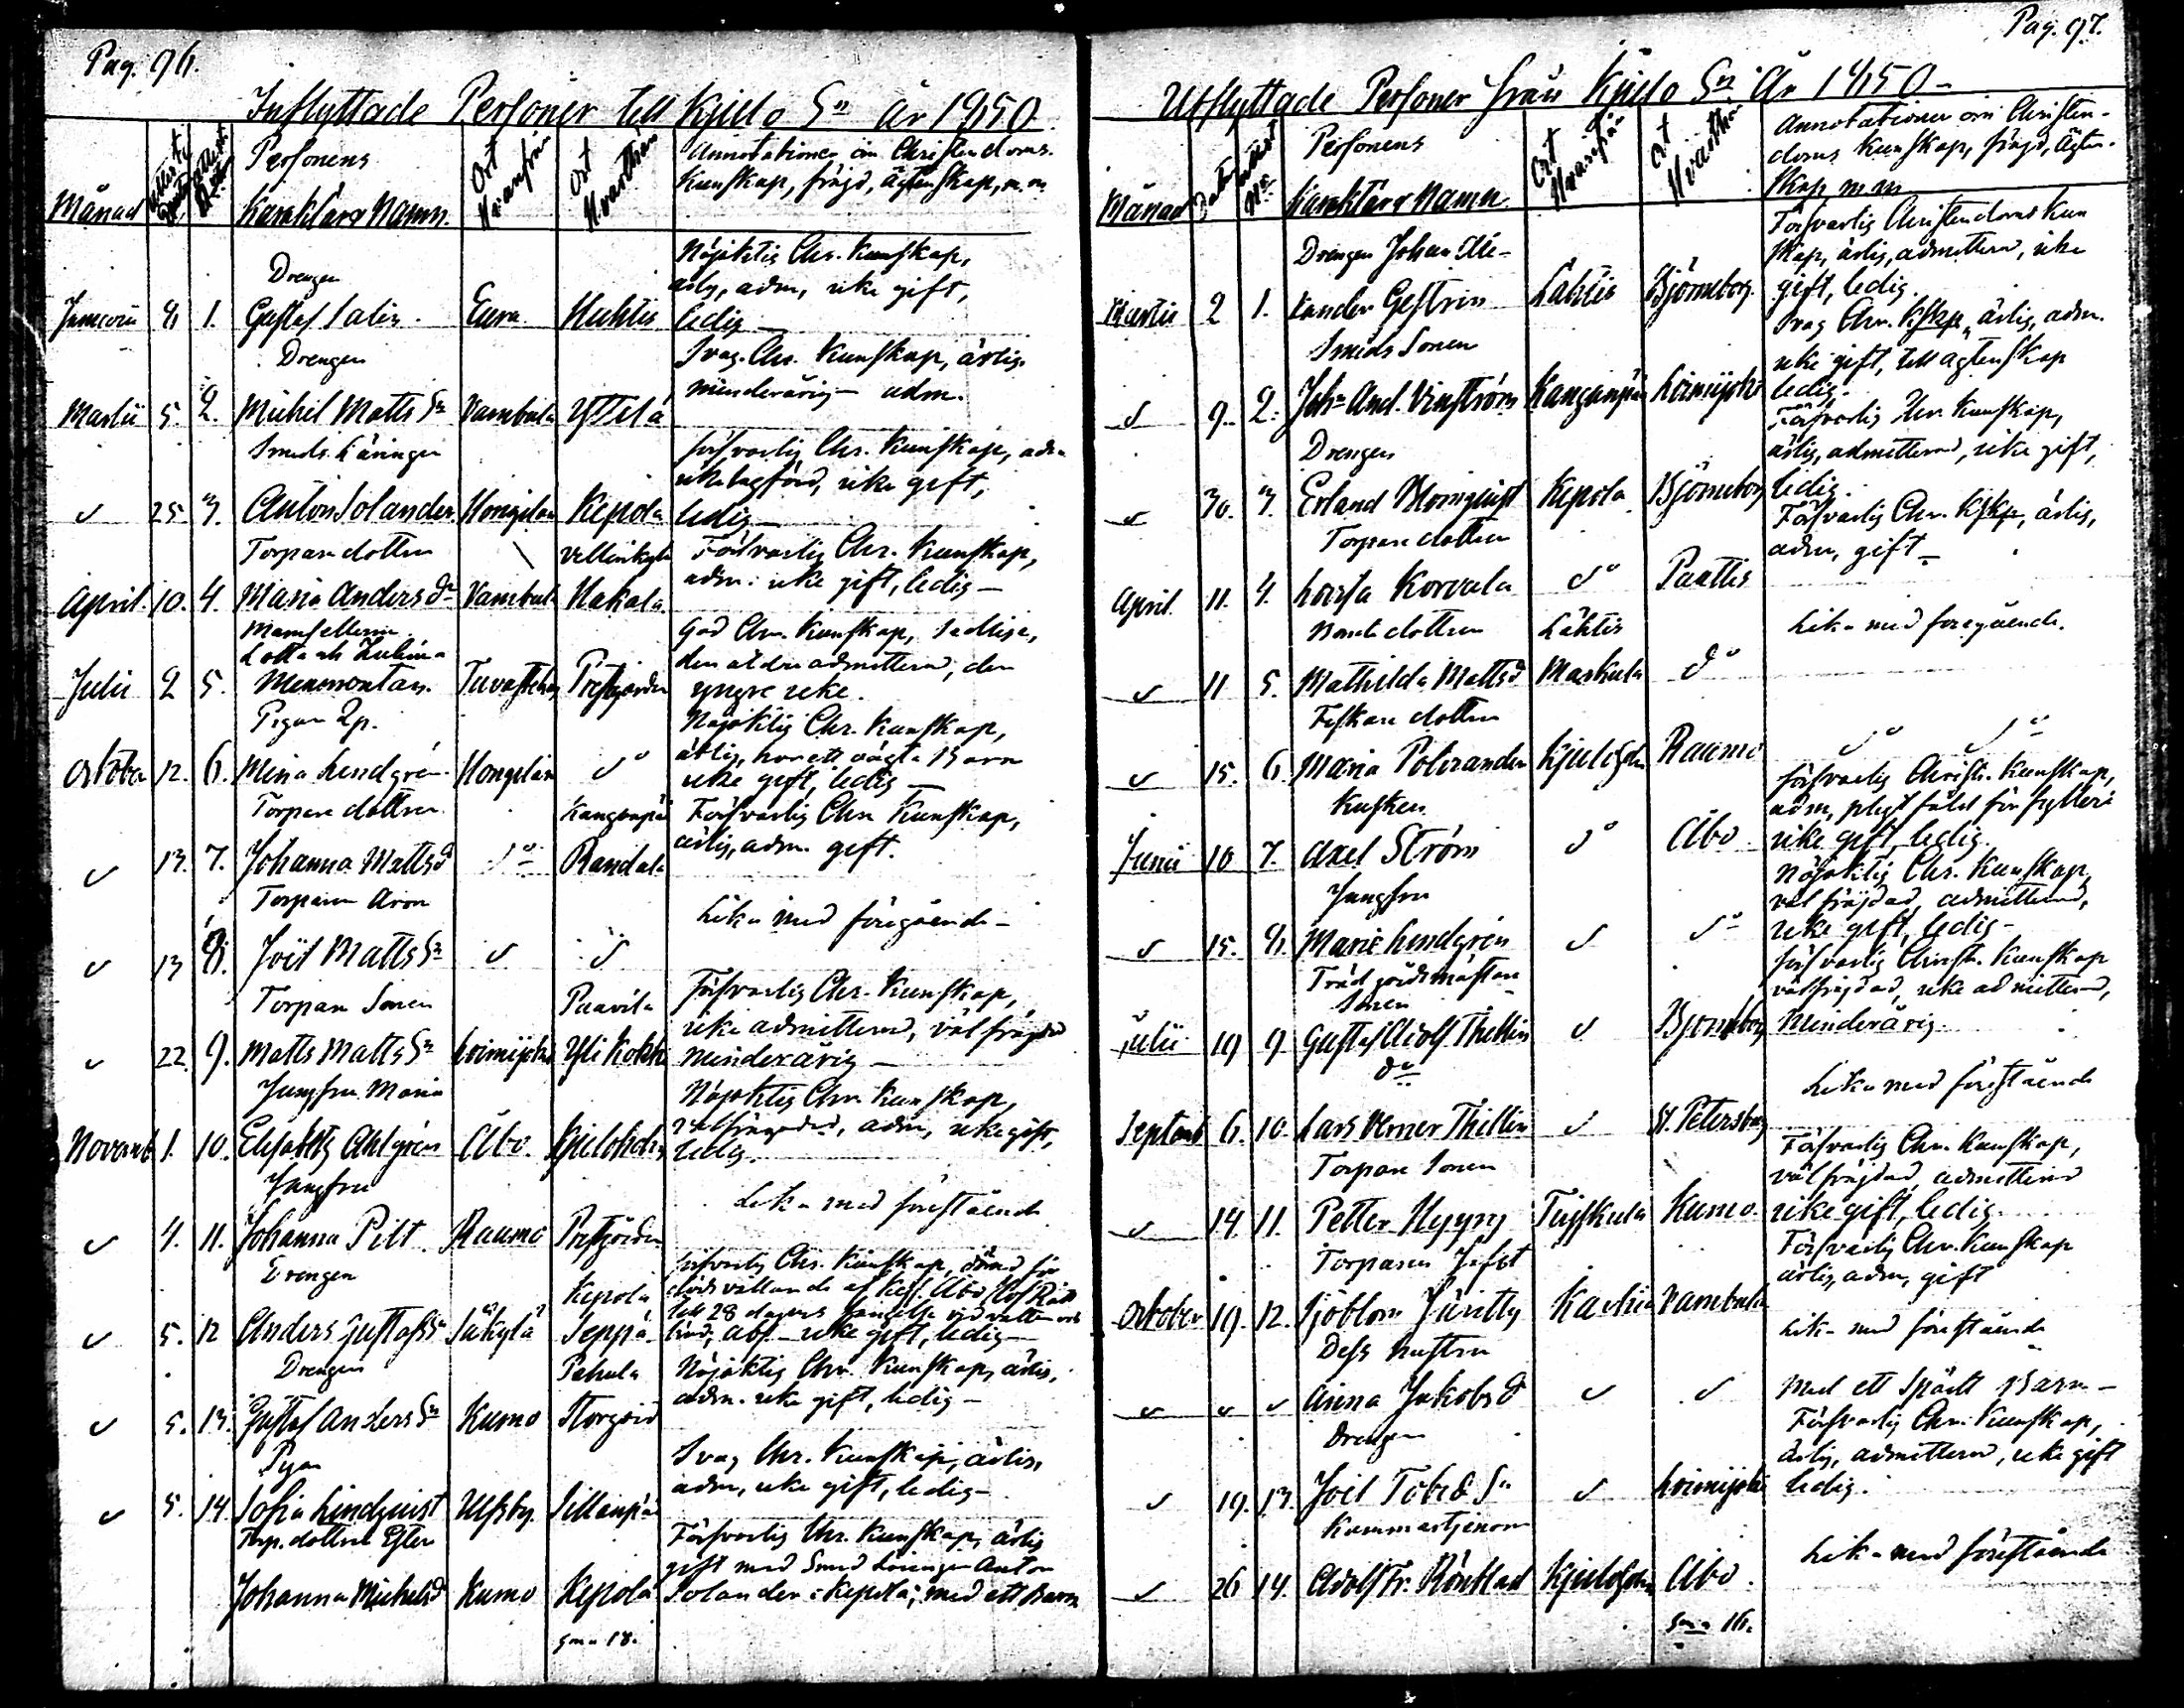 Pag. 96.
Inflyttade Personer till Kjulo Sn år 1850
Månad
Personens
Karaktär o Namn.
Ort Hvarifrån
Ort Hvarthän
Annotationer om Christendoms-
Kunskap, frägd, ägtenskap, m. m.
Drengen
Nöjaktig Chr. Kunskap,
ärlig, adm, icke gift,
8 1. Gustaf Salin. Eura Huhtis ledig —
Drengen
Svag. Chr. Kunskap, ärlig.
minderårig — adm.
Martii 5. 2. Michil Matts Sn Vambula Yttilä
Smeds Läringen
försvarlig Chr. Kunskap, adm
icke lagförd, icke gift,
25. 3. Anton Solander Hongilax Kepola ledig —
Torpare dottren
Försvarlig Chr. Kunskap,
adm: icke gift, ledig —
April. 10. 4. Maria Anders dr Vambula Hakala
Mamsellerna
Lotta och
God Chr. Kunskap,
den äldre admitterad, den
Julii 2 5. Tavastehus Prestgården
yngre icke.
Pigan
Nöjaktig Chr. Kunskap,
ärlig, har ett oägta Barn
October 12. 6. Mina Lindgrén Hongilax do icke gift, ledig —
Torpare dottren Kanganpää Försvarlig Chr Kunskap,
ärlig, adm. gift.
13. 7. Johanna Mattsd do Randala
Torparen Aron
Lika med föregående —
13 8. Joël Matts Sn
Torpare Sonen Paavila Försvarlig Chr. Kunskap,
icke admitterad, väl frägdad
22. 9. Matts Matts Sn Loimijoki Yli Kokko minderårig —
Jungfru Maria
Nöjaktig Chr. Kunskap,
välfrägdad, adm, icke gift,
Novemb 1. 10. Elisabeth Ahlgrén Åbo. ledig.
Jungfru
Lika med förestående
4. 11. Johanna Pilt Raumo Prestgården
Drengen
försvarlig Chr. Kunskap, dömd för
Kepola dödsvållande af Kejs. Åbo Hof Rätt
till 28 dagars fängelse vid vatten och
5. 12 Anders Gustafs Sn Säkylä Seppä bröd, abs. — icke gift, ledig —
Drengen Pahula Nöjaktig Chr. Kunskap, ärlig,
adm. icke gift, ledig —
5. 13. Gustaf Anders Sn Kumo Storgård
Pigan
Svag Chr. Kunskap, ärlig,
adm, icke gift, ledig —
5. 14. Sofia Lindquist Ulfsby. Sillanpää
Torp. dottren Ester
Försvarlig Chr. Kunskap, ärlig
gift med Smed Läringen Anton
Johanna Michelsd Kumo Kepola Solander i Kepola; med ett Barn
18.
Pag. 97.
Utflyttade Personer från Kjulo Sn År 1850 —
Månad
Personens
Karaktär o Namn
Ort Hvarifrån
Ort Hvarthän
Annotationer om Christen-
doms Kunskap, frägd, Ägten-
skap m m
Drengen Johan
Försvarlig Christendoms Kun
skap, ärlig, admitterad, icke
Martii 2 1. Gestrin Lähtis Björneborg. gift, ledig.
Smeds Sonen
Svag Chr. Kskp, ärlig, adm.
icke gift, till ägtenskap
9. 2. Joh. And. Vinström Kanganpää Loimijoki ledig.
Drengen
Försvarlig Chr. Kunskap,
ärlig, admitterad, icke gift,
30. 3. Erland Blomquist Kepola Björneborg ledig.
Torpare dottren
Försvarlig Chr. Kskp, ärlig,
adm, gift —
April. 11. 4. Lovisa Korvala do Paattis
Bonde dottren Lähtis
Lika med foregående.
11 5. Mathilda Mattsd Markula do
Fiskare dottren
15. 6. Maria Polviander Raumo
Kusken
försvarlig Christ. Kunskap,
adm, pligt fäld för fylleri
Junii 10 7. Axel Ström do Åbo icke gift, ledig.
Jungfru
Nöjaktig Chr. Kunskap,
väl frägdad, admitterad,
15. 8. Marie Lindgrén icke gift, ledig —
Trädgårdsmästare
Sonen
försvarlig Christ. Kunskap
välfrägdad, icke admitterad,
Julii 19 9 Gustaf Adolf Thillin Björneborg Minderårig.
do
Lika med förestående
Septemb 6. 10. Lars Verner Thillin St. Petersburg
Torpare Sonen
Försvarlig Chr. Kunskap,
välfrägdad, admitterad
14. 11. Petter Hyppy Tuiskula Kumo icke gift, ledig.
Torparen Jafet
Försvarlig Chr. Kunskap
ärlig, adm, gift
October 19. 12. Sjöblom Karhia Vambula
Lika med förestående
Dess hustru
Anna Jakobsd Med ett Spädt Barn —
Drengen
Försvarlig Chr. Kunskap,
ärlig, admitterad, icke gift
19. 13. Joël Tobias Sn Loimijoki ledig.
Kammartjenaren
Lika med förestående
26 14. Adolf Fr. Rönblad Åbo.
16.